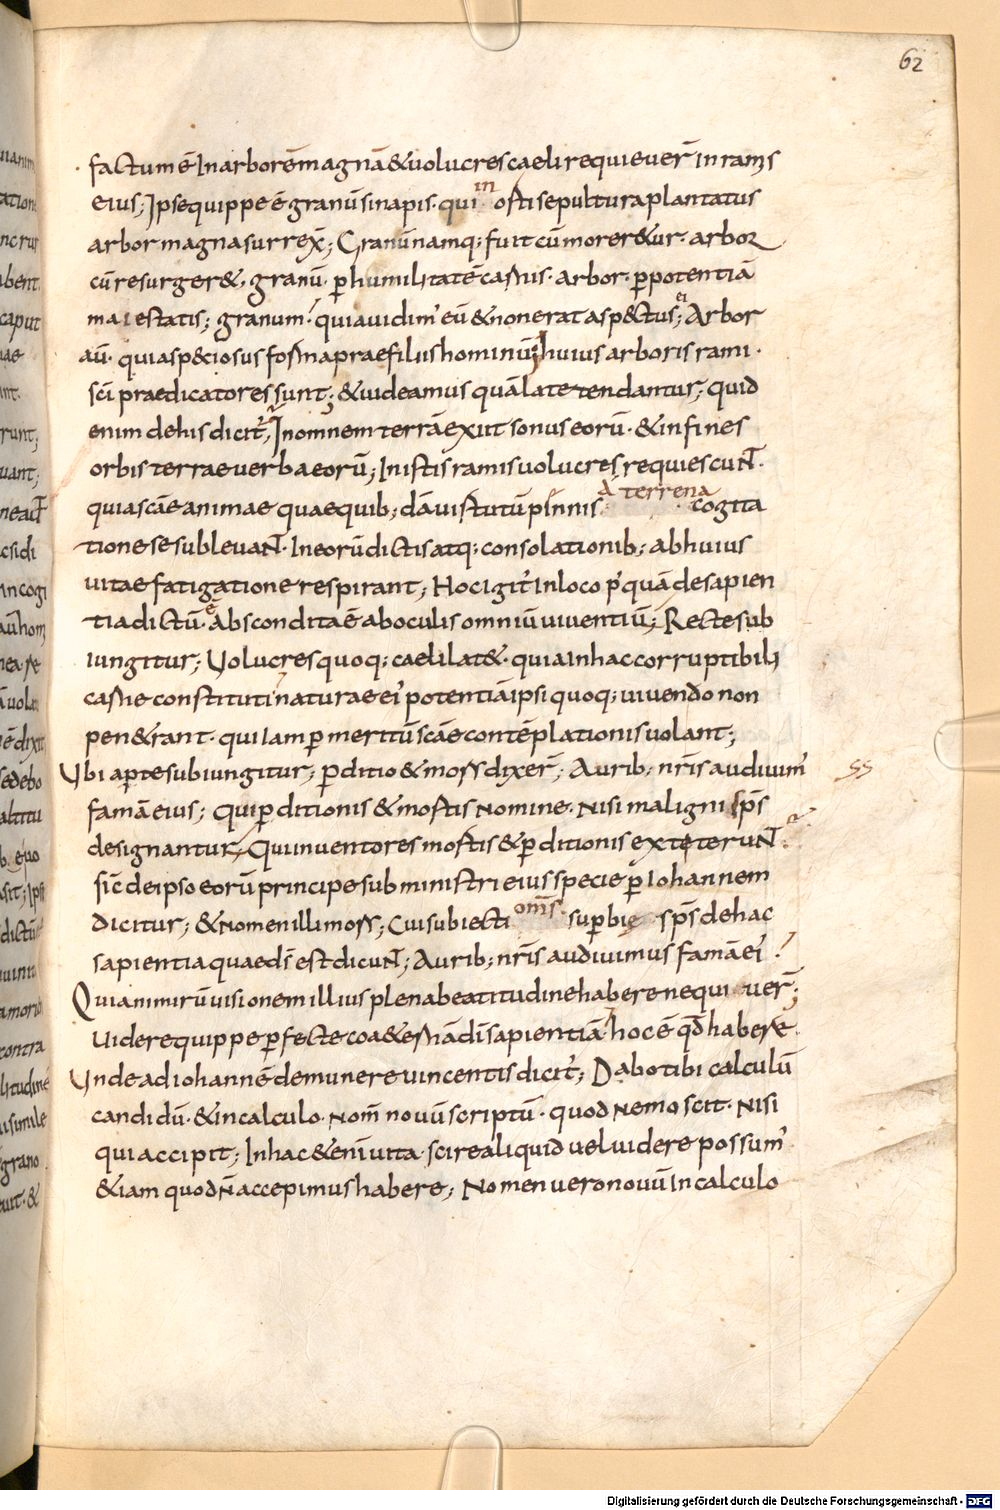 62
factum ē In arborē magnā & uolucres caeli requieuer̄ in ramis
eius; Ipse quippe ē granū sinapis · qui in orti sepultura plantatus
arbor magna surrex̄; Granū namq; fuit cū morer&ur · arbor
cū resurger& · granū · ꝑ humilitatē carnis · arbor · ꝑ potentiā
maiestatis; granum · quia uidim' eū & non erat aspectus ei; Arbor
aū · quia speciosus forma prae filiis hominū; huius arboris rami ·
sc̄i praedicatores sunt; & uideamus quā late tendantur; quid
enim de his dicit'; In omnem terrā exiit sonus eorū · & in fines
orbis terrae uerba eorū; In istis ramis uolucres requiescuNT ·
quia sc̄ae animae quae quib; dā uirtutū pinnis a terrena cogita
tione se subleuaNT · In eorū dictis atq; consolationib; ab huius
uitae fatigatione respirant; Hoc igit' In loco p' quā de sapien
tia dictū ē · Abscondita ē ab oculis omniū uiuentiū; Recte sub
iungitur; Uolucres quoq; caeli lat& · quia In hac corruptibili
carne constituti naturae ei' potentiā ipsi quoq; uiuendo non
pen&rant · qui Iam ꝑ meritū sc̄ae contēplationis uolant;
Ubi aperte subiungitur; ꝑditio & mors dixer̄; Aurib; nr̄is audiuim'
famā eius; Qui ꝑditionis & mortis nomine · nisi maligni sp̄s
designantur, Qui inuentores mortis & ꝑditionis exteteruNT ·
sic̄ de ipso eorū principe sub ministri eius specie ꝑ Iohannem
dicitur; & nomen illi mors; Cui subiecti om̄s superbię sp̄s de hac
sapientia quae d̄s est dicuNT; Aurib; nr̄is audiuimus famā ei'
Quia nimirū uisionem illius plena beatitudine habere nequiuer̄;
Uidere quippe ꝑfecte coa&ernā dī sapientiā · hoc ē qđ habere ·
Unde ad iohannē de munere uincentis dicit'; Dabo tibi calculū
candidū · & in calculo · nom̄ nouū scriptū · quod nemo scit · nisi
qui accipit; In hac &enī uita · scire aliquid uel uidere possum'
& iam quod n̄ accepimus habere; Nomen uero nouū In calculo
Digitalisierung gefördert durch die Deutsche Forschungsgemeinschaft - DFG